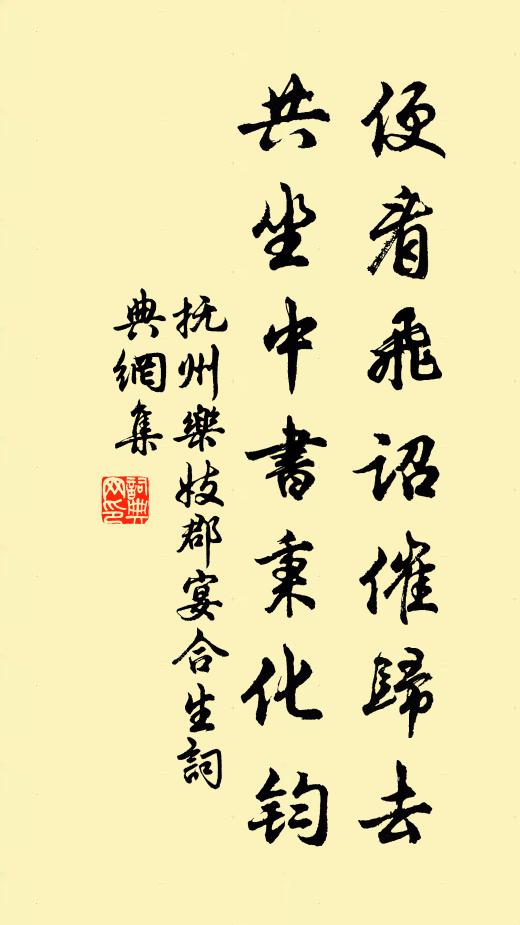 便看飛詔催歸去
共坐中書秉化钧
抚州樂妓郡宴合生詞
典網集
詞典网印